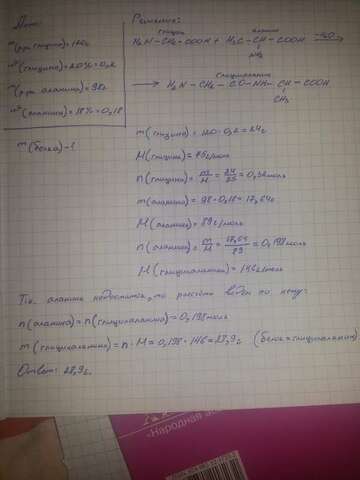 Дано:
m(р-ра глицина)=120г
ω(глицина)=20%=0,2
m(р-ра аланина)=98г
ω(аланина)=18%=0,18
m(белка)-?
Решение:
глицин аланин
H₂N-CH₂-COOH + H₂C-CH-COOH -H₂O→
NH₂
глицилаланин
→ H₂N-CH₂-CO-NH-CH-COOH
CH₃
m(глицина)=120·0,2=24г
M(глицина)=75г/моль
n(глицина)=m/M=24/75=0,32моль
m(аланина)=98·0,18=17,64г
M(аланина)=89г/моль
n(аланина)=m/M=17,64/89=0,198моль
M(глицилаланина)=146г/моль
Т.к. аланин недостаток, то расчёт ведём по нему:
n(аланина)=n(глицилаланина)=0,198моль
m(глицилаланина)=n·M=0,198·146=28,9г (белка=глицилаланин)
Ответ: 28,9г.
«Народная ас